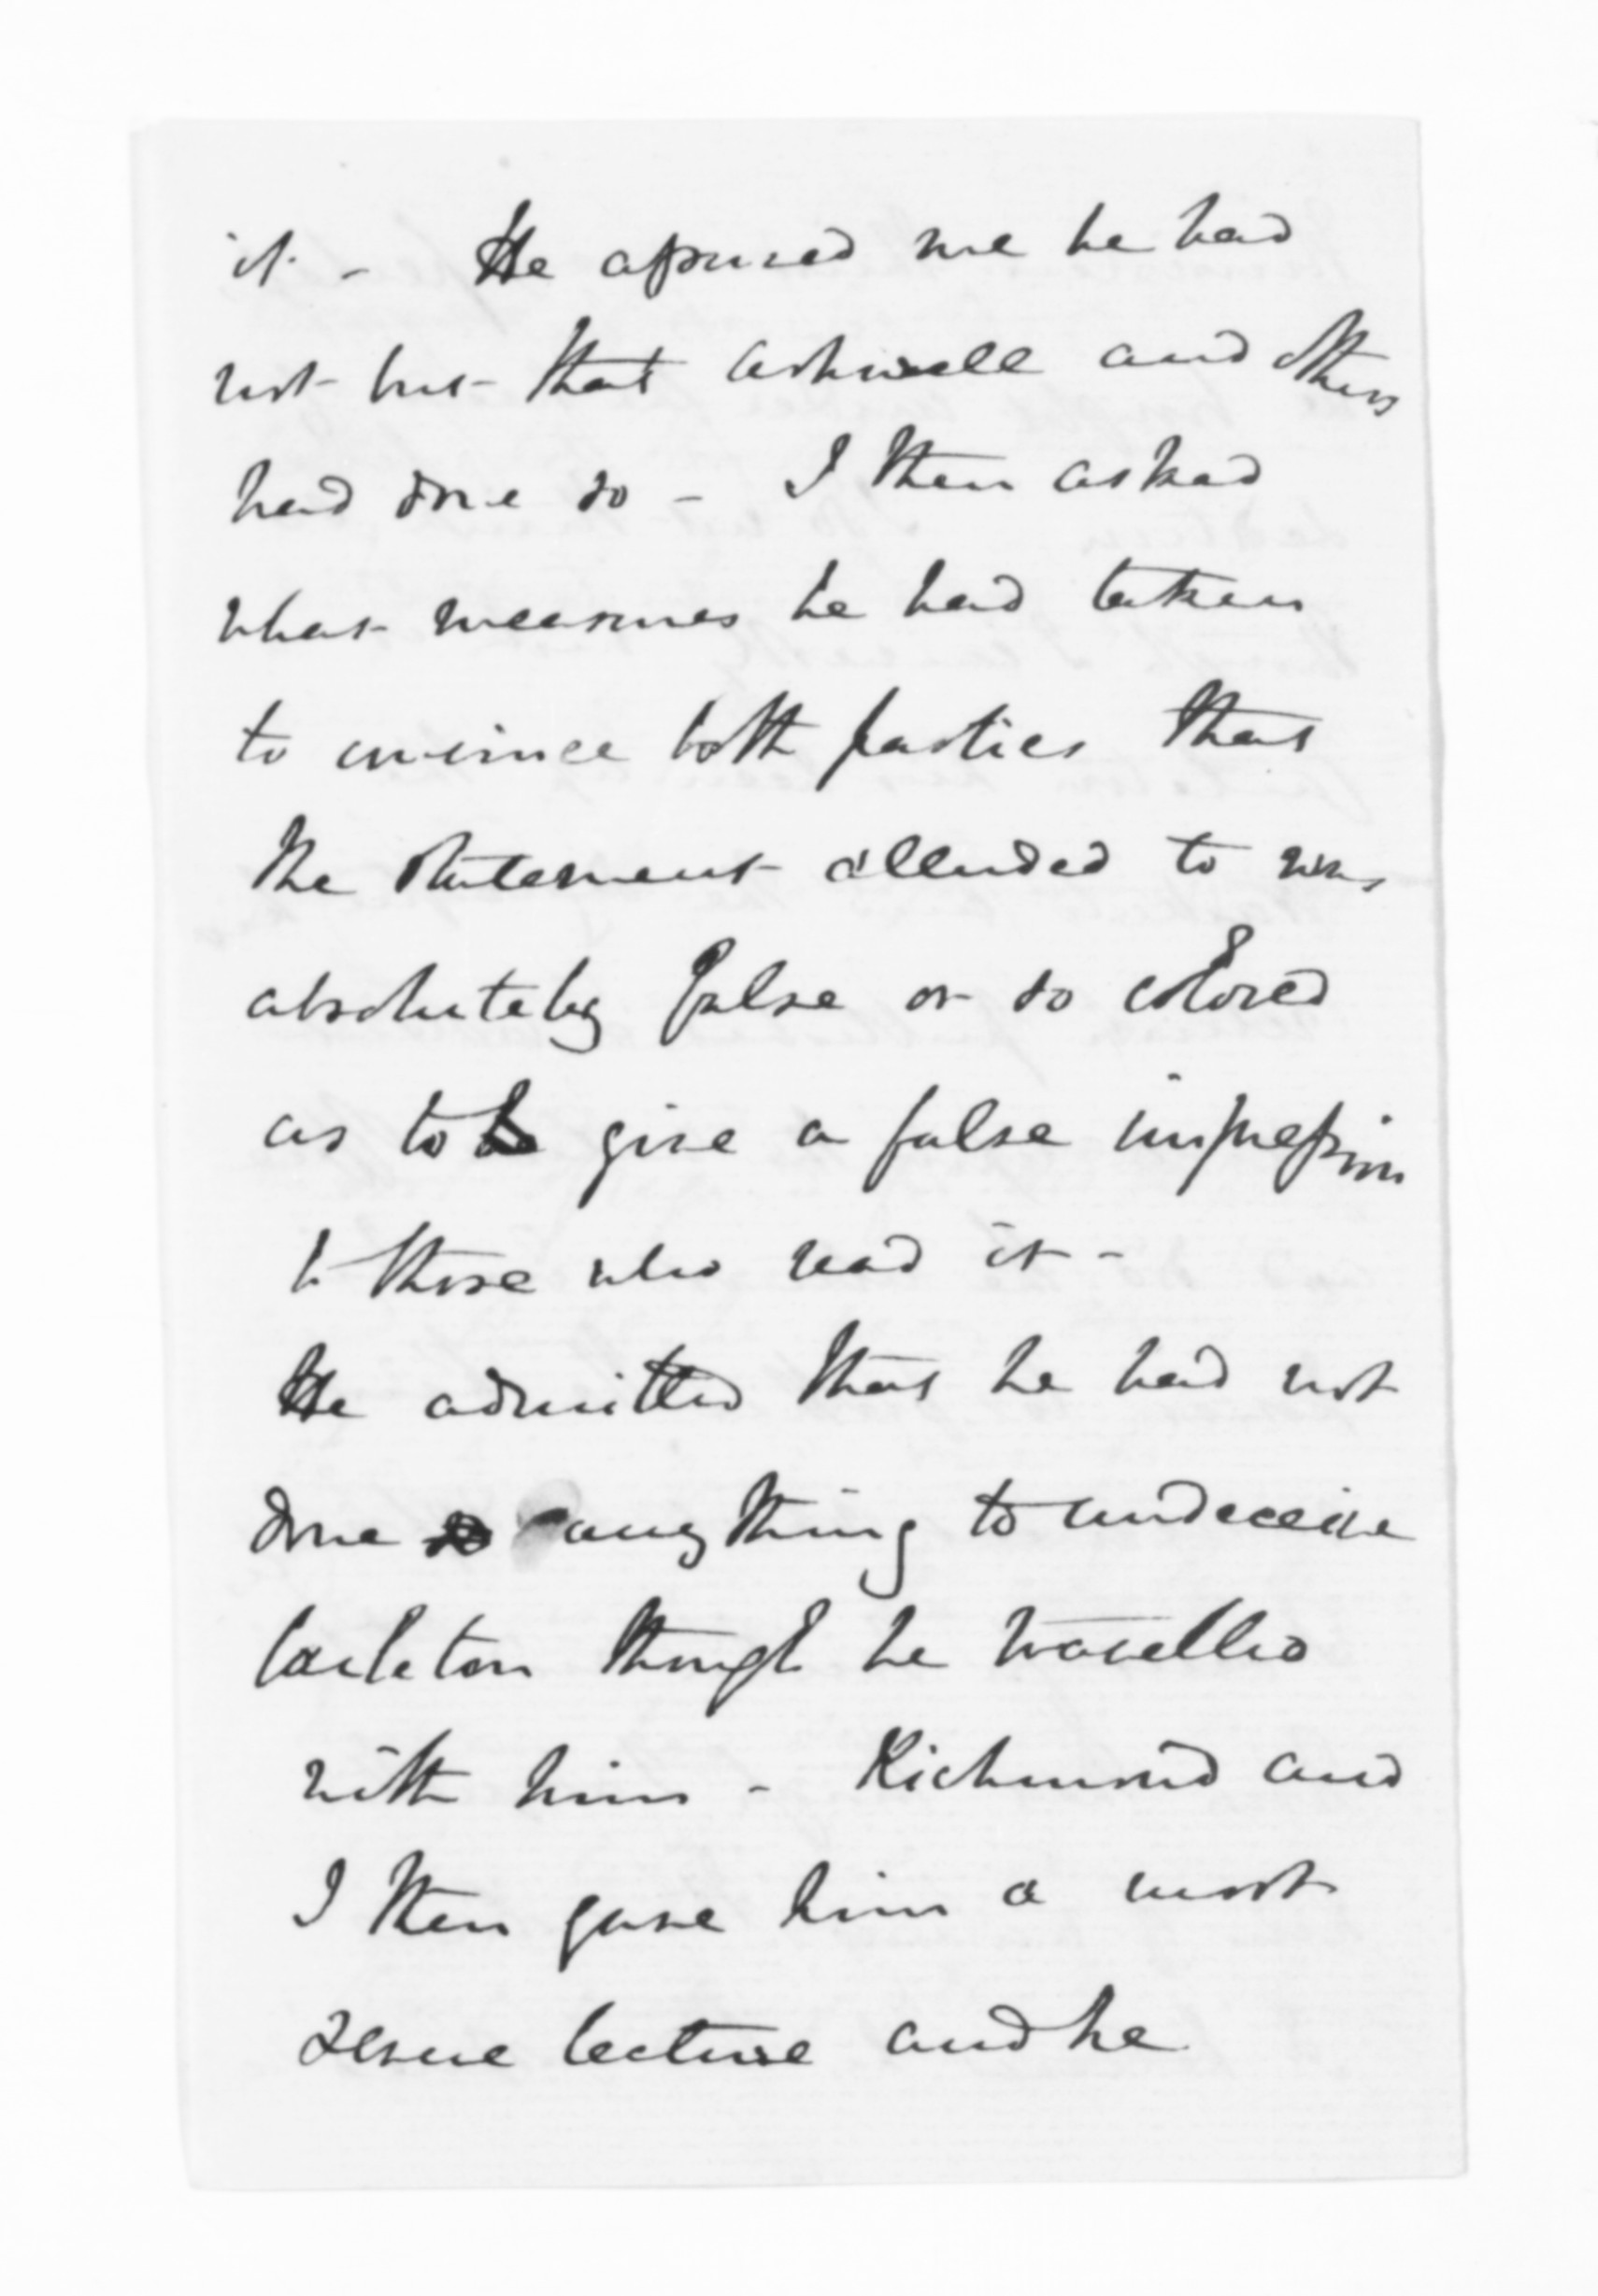 it. - He assured me he had
not but that Ashwell and others
had done so - I then asked
what measures he had taken
to convince both parties that
the statement alluded to was
absolutely false or so colored
as to give a false impression
to those who read it -
He admitted that he had not
done anything to undeceive
Carleton though he travelled
with him - Richmond and
I then gave him a most
severe lecture and he